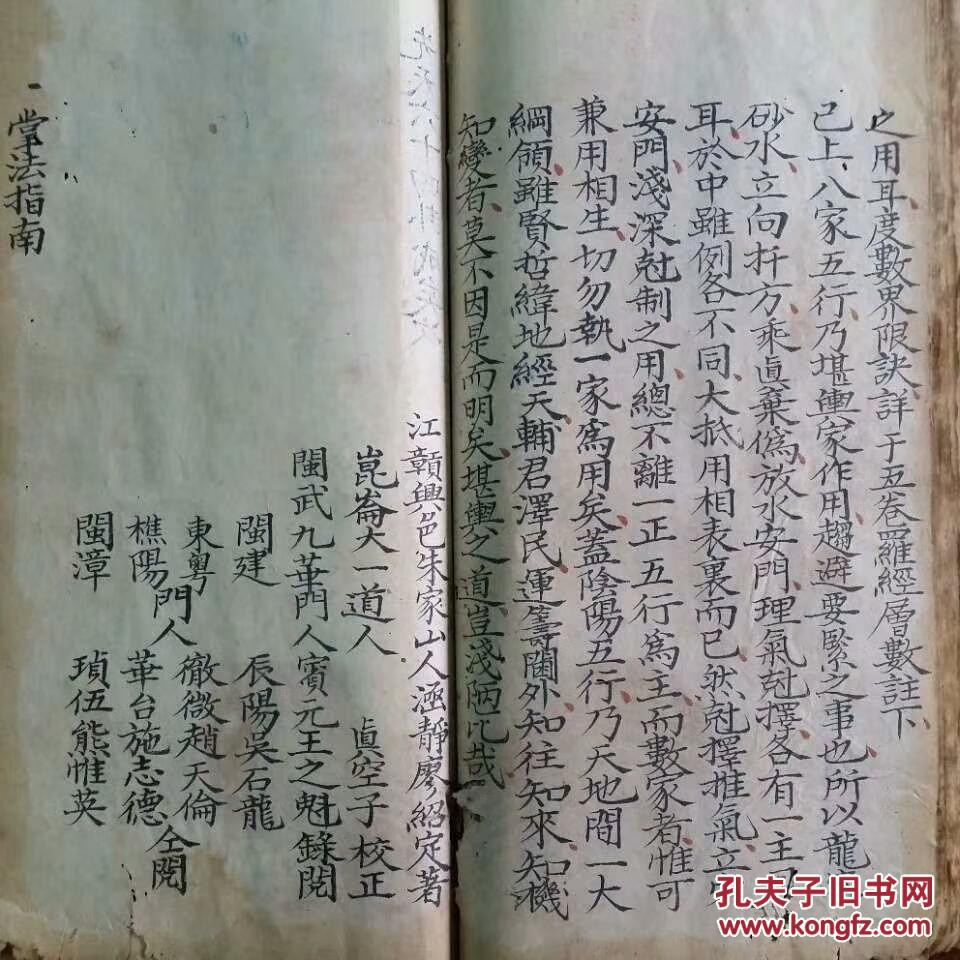 之用耳度數界限訣詳于五卷羅經層數註下
已上八家五行乃堪輿家作用趨避要緊之事也所以龍
砂水立向扦方乘眞棄僞放水安門理氣尅擇各有一主
耳於中雖例各不同大抵用相表裏而已然尅擇推氣立
安門淺深尅制之用總不離一正五行爲主而數家者惟可
兼用相生切勿執一家爲用矣蓋陰陽五行乃天地間一大
綱領雖賢哲緯地經天輔君澤民運籌閫外知往知來知機
知變者莫不因是而明矣堪輿之道豈淺陋比哉
江贛興邑朱家山人涵靜廖紹定著
崑崙大一道人 眞空子校正
閩武九華門人賓元王之魁錄閱
閩建 辰陽吳石龍
東粵 徹微趙天倫
樵陽 華台施志德
閩漳 瑣伍熊惟英
門人 仝閱
掌法指南
孔夫子旧书网
www.kongfz.com